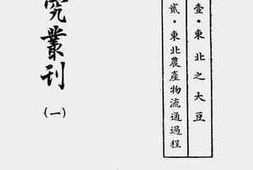 壹·東北之大豆
貳·東北農產物流通過程
究叢刊
(一)